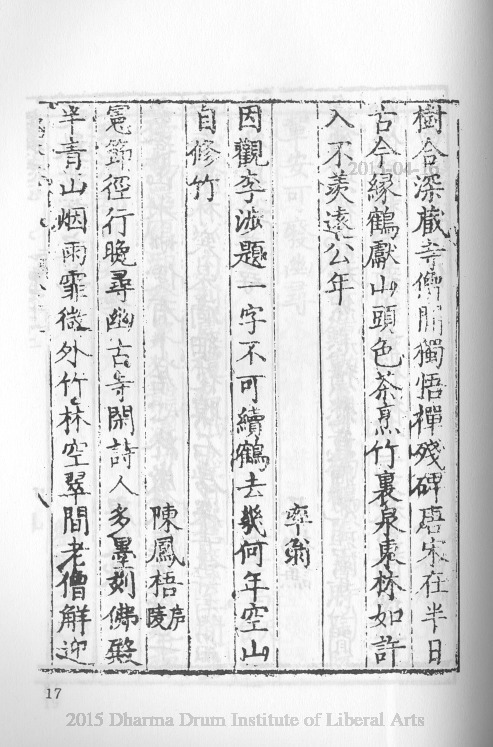 樹合深藏寺僧閒獨悟禪殘碑唐宋在半日
古今緣鶴獻山頭色茶烹竹裏泉東林如許
入不羨遠公年
率翁
因觀李涉題一字不可續鶴去幾何年空山
自修竹
陳鳳梧廬陵
憲節徑行晚尋幽古寺閑詩人多墨刻佛殿
半青山烟雨霏微外竹林空翠間老僧解迎
17
2015 Dharma Drum Institute of Liberal Arts